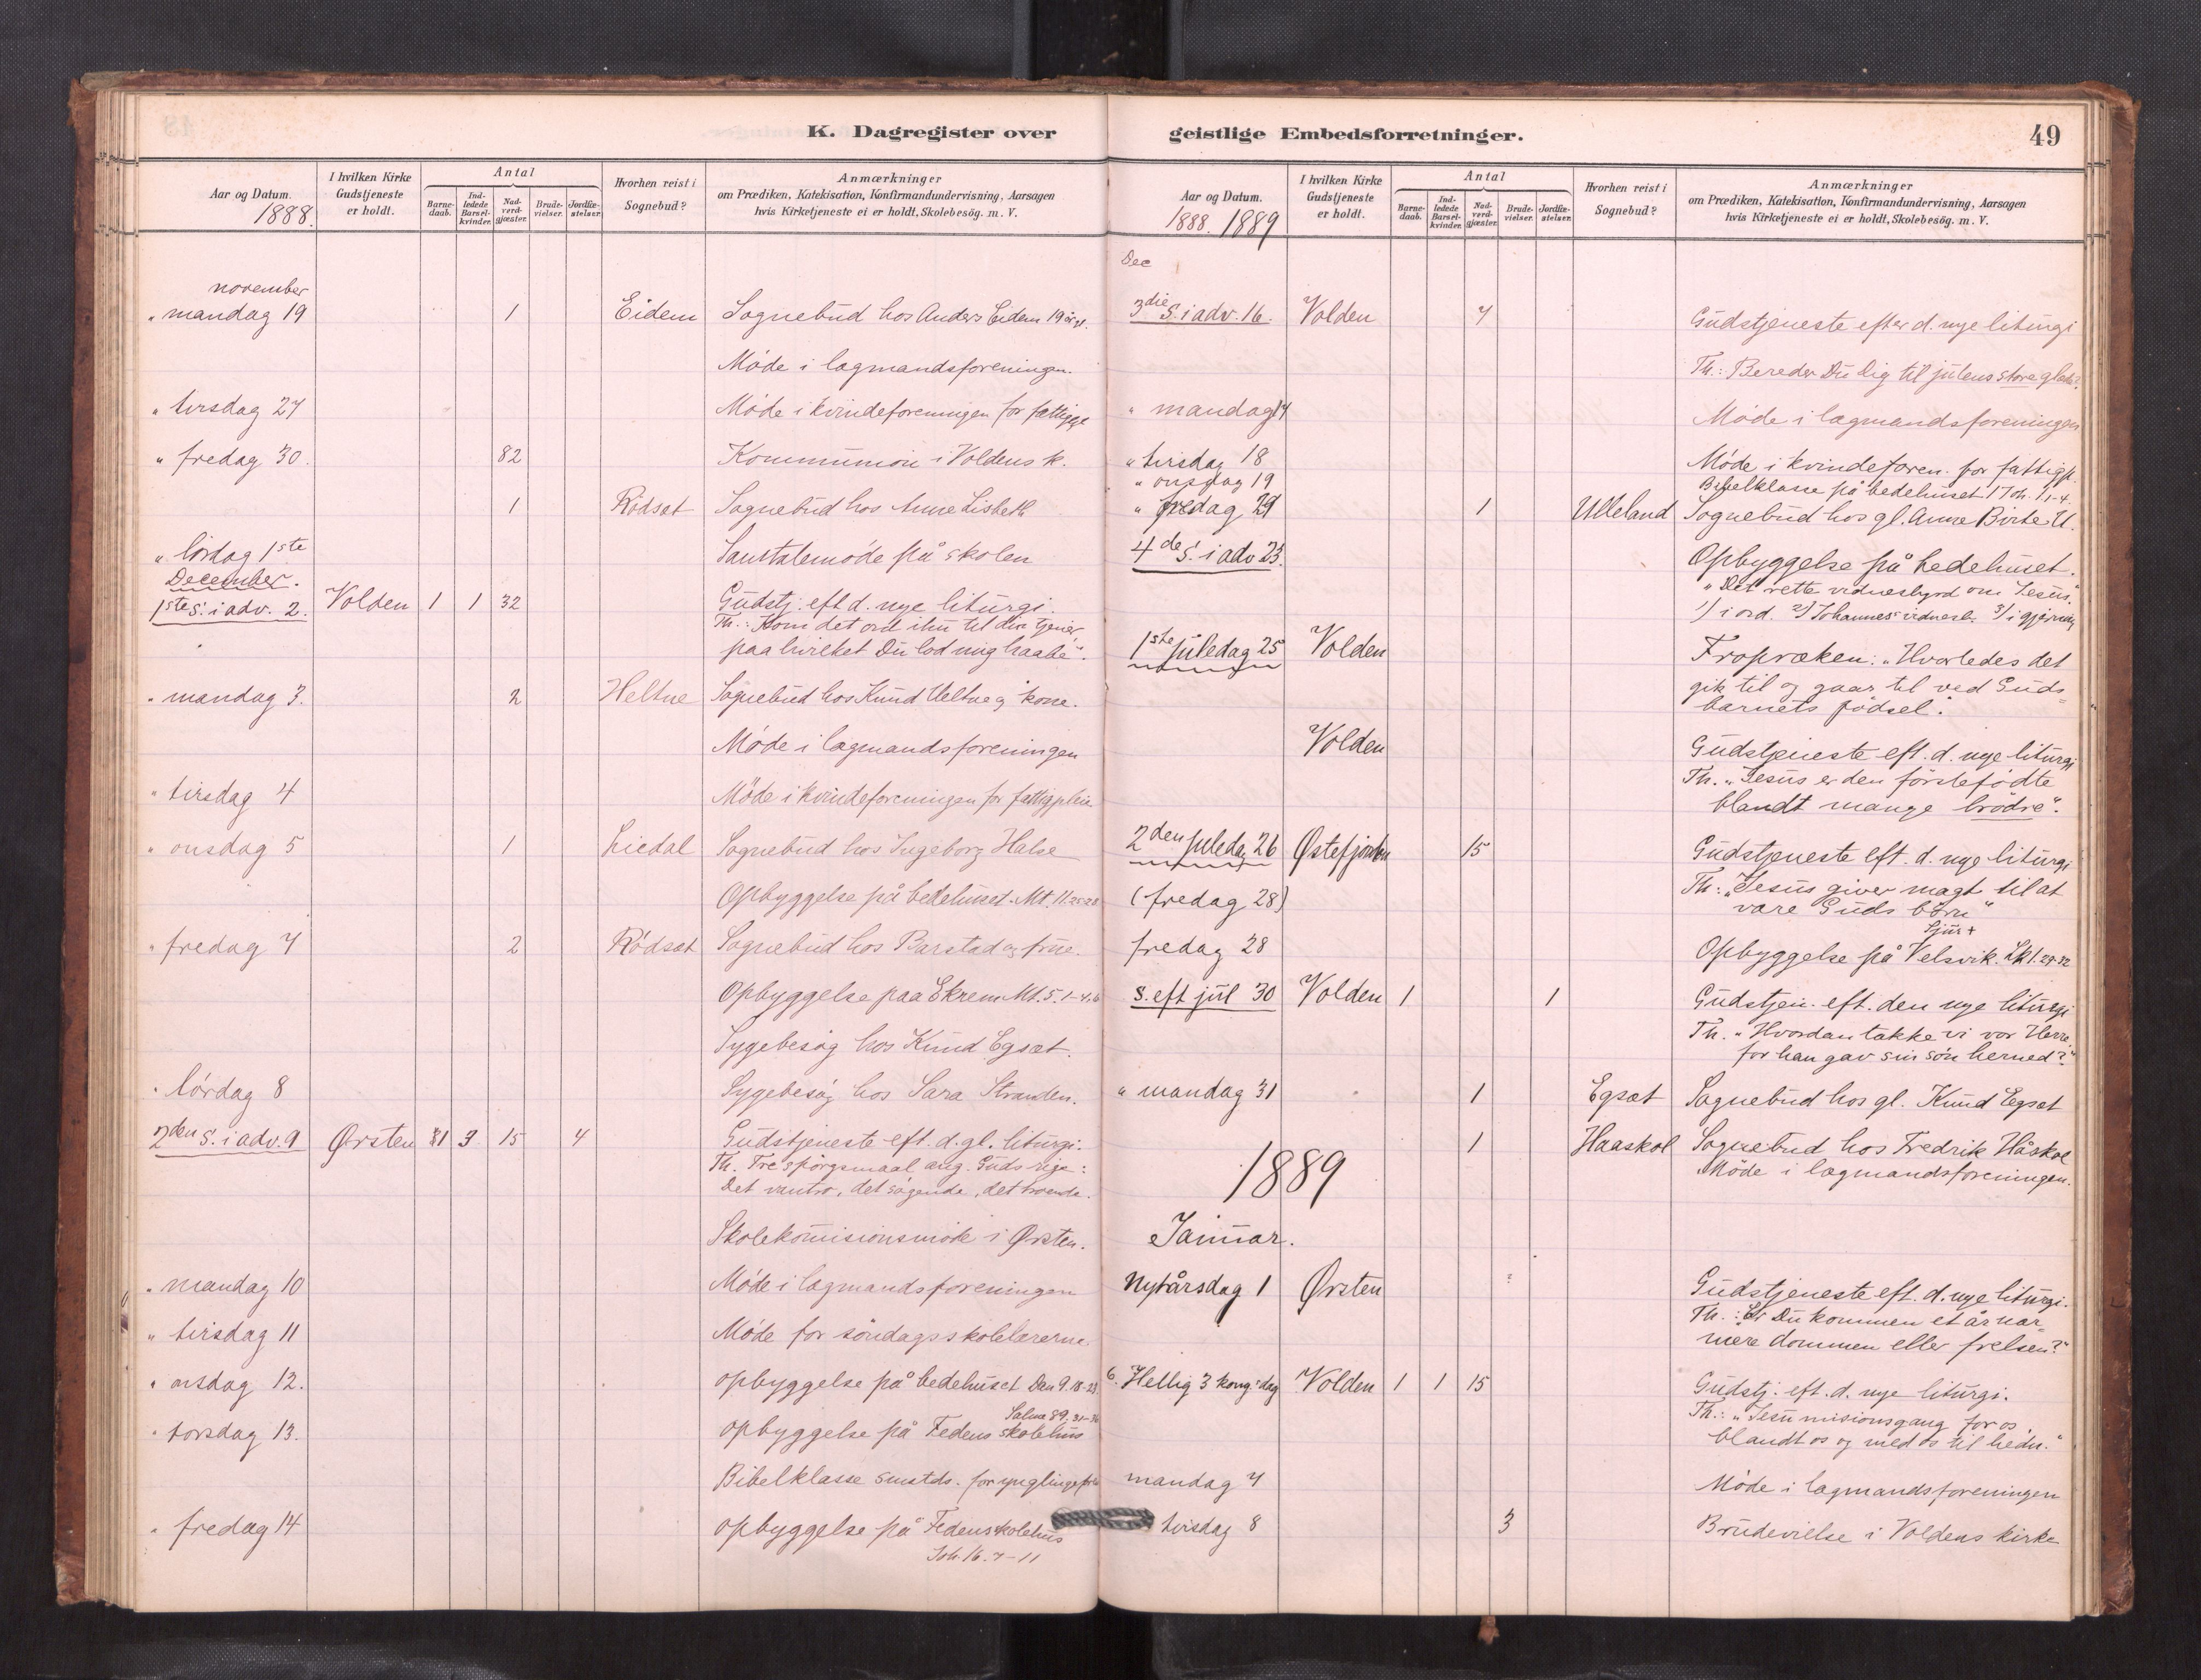 K. Dagregister over
Aar og Datum.
1888.
I hvilken Kirke Gudstjeneste er holdt.
Antal
Barnedaab.
Indledede Barselkvinder.
Nadverdgjæster.
Brudevielser.
Jordfæstelser.
Hvorhen reist i Sognebud?
Anmærkninger
om Prædiken, Katekisation, Konfirmandundervisning, Aarsagen
hvis Kirketjeneste ei er holdt, Skolebesög. m. V.
november
" mandag 19 1 Eidem Sognebud hos Anders Eidem 19 år gl.
Møde i lægmandsforeningen.
" tirsdag 27 Møde i kvindeforeningen for
" fredag 30. 82 Kommunion i Voldens k.
1 Rødsæt Sognebud hos Anne Lisbeth
" lørdag 1ste Samtalemøde på skolen
December.
1ste S. i adv. 2. Volden 1 1 32 Gudstj. eft d. nye liturgi.
Th.: Kom det ord ihu til din tjener,
paa hvilket Du lod mig haabe".
" mandag 3. 2 Heltne Sognebud hos Knud Heltne og kone.
Møde i lægmandsforeningen
" tirsdag 4 Møde i kvindeforeningen for fattigpleie
" onsdag 5 1 Liedal Sognebud hos Ingeborg Halse
Opbyggelse på bedehuset. Mt. 11.25-28
" fredag 7 2 Rødsæt Sognebud hos Barstad og frue.
Opbyggelse paa Ekrem Mt. 5. 1-4.6
Sygebesøg hos Knud Egsæt.
" lørdag 8 Sygebesøg hos Sara Stranden.
2den S. i adv. 9 Ørsten 31 3 15 4 Gudstjeneste eft. d. gl. liturgi.
Th. Tre spørgsmaal ang. Guds rige:
Det vantro, det søgende, det troende.
Skolekomisionsmøde i Ørsten.
" mandag 10 Møde i lægmandsforeningen
" tirsdag 11 Møde for søndagsskolelærerne.
" onsdag 12. opbyggelse på bedehuset Dan 9. 18-23
Salme 89, 31-36
" torsdag 13. opbyggelse på Fedens skolehus
Bibelklasse smstds. for
" fredag 14 opbyggelse på Fedenskolehus
Joh. 16. 7-11
geistlige Embedsforretninger.
49
Aar og Datum.
1888. 1889
I hvilken Kirke Gudstjeneste er holdt.
Antal
Barnedaab.
Indledede Barselkvinder.
Nadverdgjæster.
Brudevielser.
Jordfæstelser.
Hvorhen reist i Sognebud?
Anmærkninger
om Prædiken, Katekisation, Konfirmandundervisning, Aarsagen
hvis Kirketjeneste ei er holdt, Skolebesög. m. V.
Dec
3die S. i adv. 16. Volden 7 Gudstjeneste efter d. nye liturgi
Th.: Bereder Du dig til julens store
" mandag 17 Møde i lægmandsforeningen
" tirsdag 18 Møde i kvindeforen. for fattigp.
" onsdag 19 Bibelklasse på bedehuset 1 Joh. 1 1-4.
" fredag 21 1 Ulleland Sognebud hos gl. Anne Birte U.
4de S. i adv 23. Opbyggelse på bedehuset.
"Det rette vidnesbyrd om Jesus".
1) i ord. 2) Johannes' vidnesb. 3) i gjerning
1ste juledag 25 Volden Fropræken: "Hvorledes det
gik til og gaar til ved Guds
barnets fødsel".
Volden Gudstjeneste eft. d. nye liturgi
Th. "Jesus er den førstefødte
blandt mange brødre".
2den juledag 26 Østefjorden 15 Gudstjeneste eft. d. nye liturgi
(fredag 28) Th: "Jesus giver magt til at
være Guds børn"
fredag 28 Opbyggelse på Velsvik. Lk 1.
S. eft jul 30 Volden 1 1 Gudstjen. eft. den nye liturgi
Th. "Hvordan takke vi vor Herre,
for han gav sin søn herned?"
" mandag 31 1 Egsæt Sognebud hos gl. Knud Egsæt
1 Haaskol Sognebud hos Fredrik Håskol
Møde i lægmandsforeningen.
1889
Januar.
Nytårsdag 1 Ørsten Gudstjeneste eft. d. nye liturgi.
Th.: "Er Du kommen et år nær-
mere dommen eller frelsen?"
6. Hellig 3 kong: dag Volden 1 1 15 Gudstj. eft. d. nye liturgi.
Th.: "Jesu misionsgang for os,
blandt os og med os til hedn."
mandag 7 Møde i lægmandsforeningen
tirsdag 8 3 Brudevielse i Voldens kirke